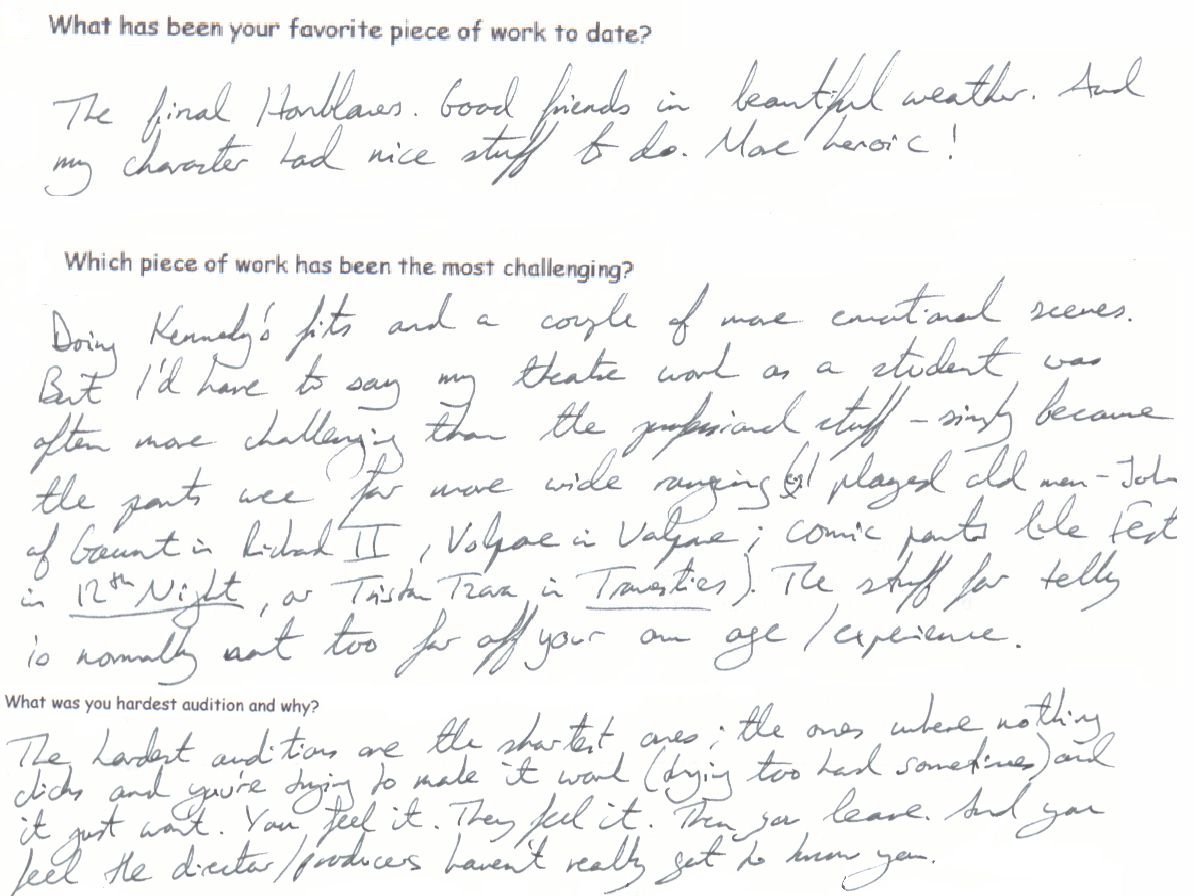 What has been your favorite piece of work to date?
The final Hornblowers. Good friends in beautiful weather. And
my character had nice stuff to do. More heroic!
Which piece of work has been the most challenging?
Doing Kennedy's fits and a couple of more emotional scenes.
But I'd have to say my theatre work as a student was
often more challenging than the professional stuff - simply because
the parts were far more wide ranging (I played old men - John
of Gaunt in Richard II, Volpone in Volpone; comic parts like Feste
in 12th Night, or Tristan Tzara in Travesties). The stuff for telly
is normally not too far off your own age/experience.
What was you hardest audition and why?
The hardest auditions are the shortest ones; the ones where nothing
clicks and you're trying to make it work (trying too hard sometimes) and
it just won't. You feel it. They feel it. Then you leave. And you
feel the director/producers haven't really got to know you.